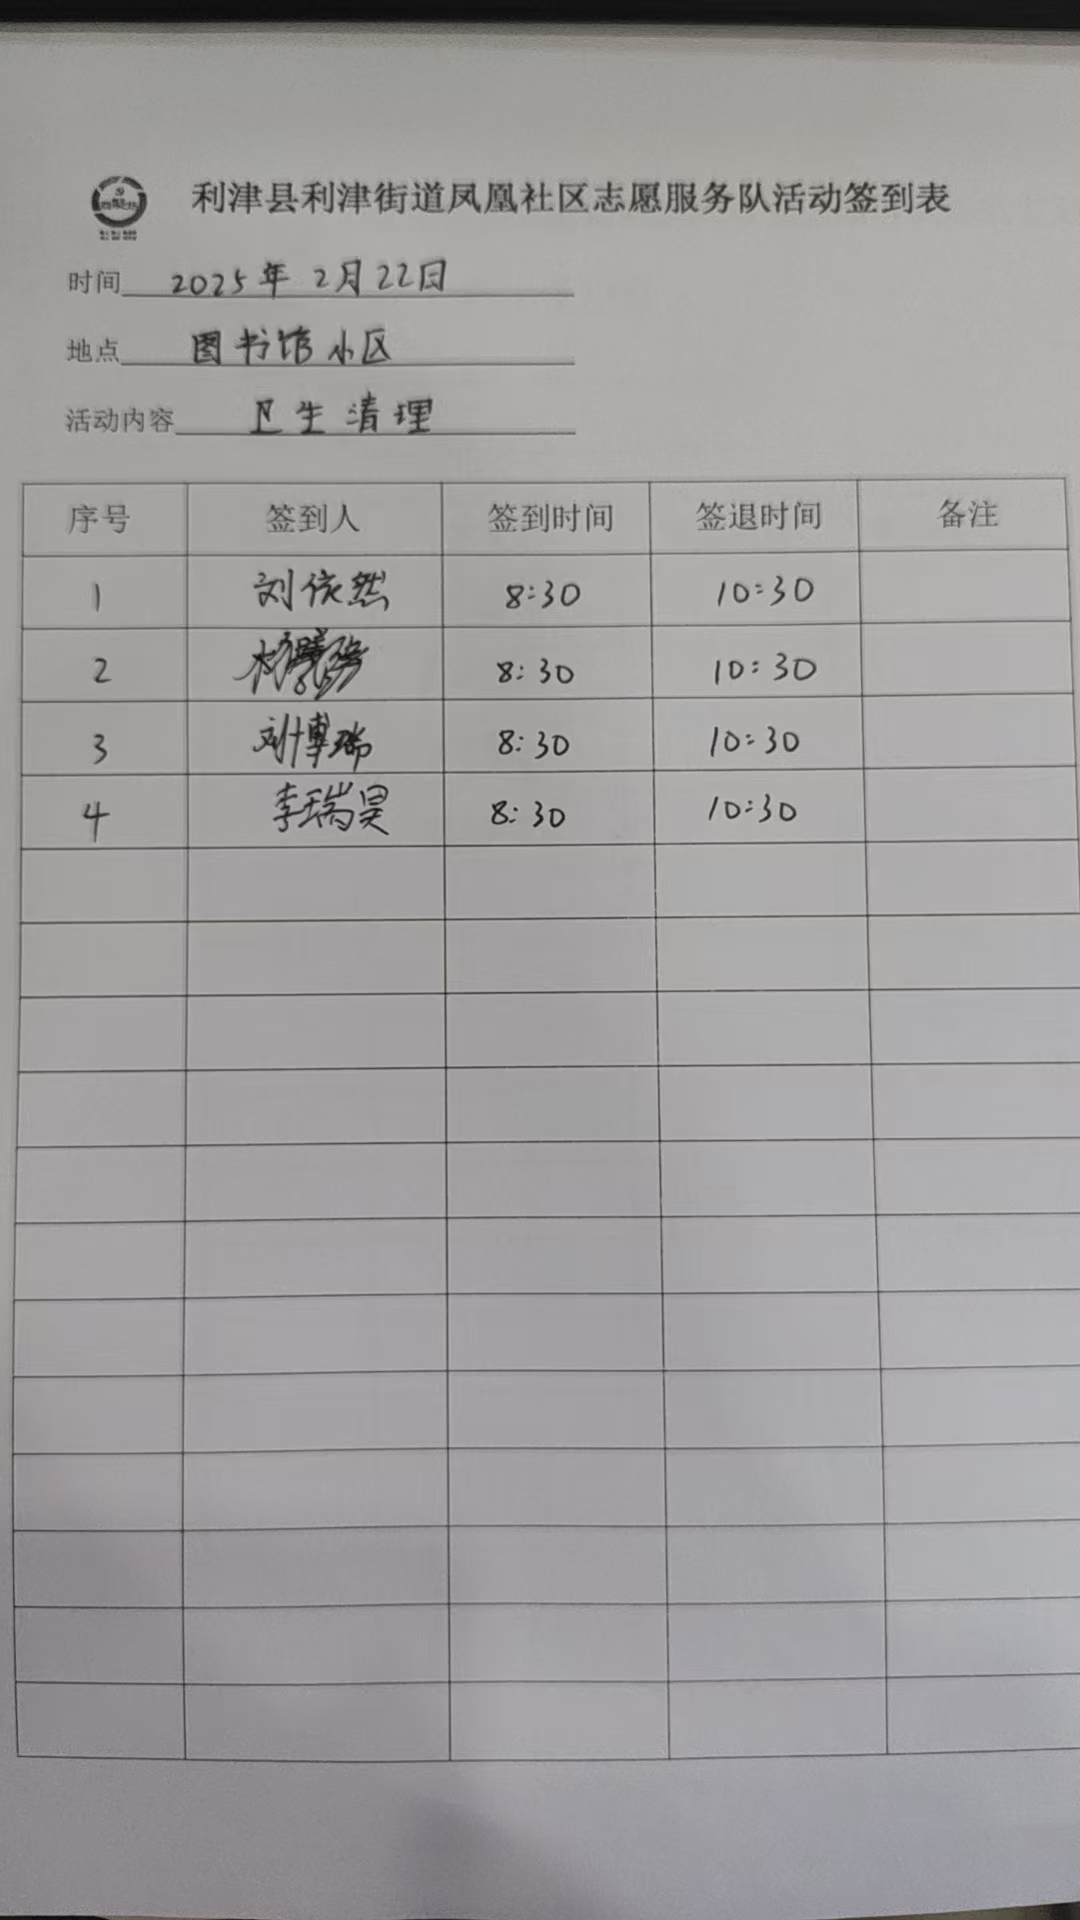 利津县利津街道凤凰社区志愿服务队活动签到表
时间 2025年2月22日
地点 图书馆小区
活动内容 卫生清理
序号 签到人 签到时间 签退时间 备注
1 刘依然 8:30 10:30
2 8:30 10:30
3 刘博瑞 8:30 10:30
4 李瑞昊 8:30 10:30